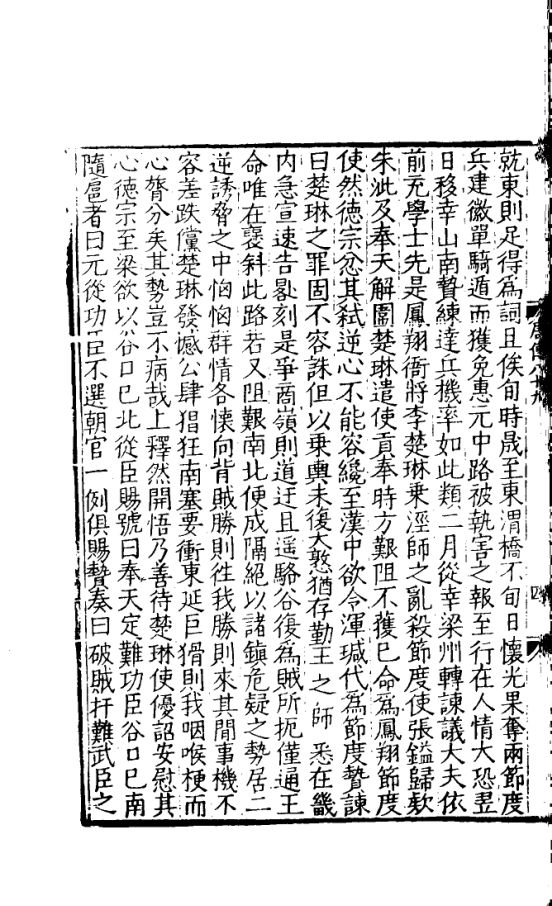 就東則足得為詞且俟旬時晟至東渭橋不旬日懷光果奪兩節度
兵建徽單騎遁而獲免惠元中路被執害之報至行在人情大恐翌
日移幸山南贄練達兵機率如此類二月從幸梁州轉諫議大夫依
前充學士先是鳳翔衙將李楚琳乗涇師之亂殺節度使張鎰歸欵
朱泚及奉天解圍楚琳遣使貢奉時方艱阻不獲已命為鳳翔節度
使然德宗忿其弑逆心不能容纔至漢中欲令渾瑊代為節度贄諫
曰楚琳之罪固不容誅但以乗輿未復大憝猶存勤王之師悉在畿
內急宣速告晷刻是爭商嶺則道迂且遥駱谷復為賊所扼僅通王
命唯在襃斜此路若又阻艱南北便成隔絕以諸鎮危疑之勢居二
逆誘脅之中恟恟群情各懷向背賊勝則徃我勝則來其間事機不
容差跌儻楚琳發憾公肆猖狂南塞要衝東延巨猾則我咽喉梗而
心膂分矣其勢豈不病哉上釋然開悟乃善待楚琳使優詔安慰其
心德宗至梁欲以谷口已北從臣賜號曰奉天定難功臣谷口已南
隨扈者曰元從功臣不選朝官一例俱賜贄奏曰破賊扞難武臣之
四